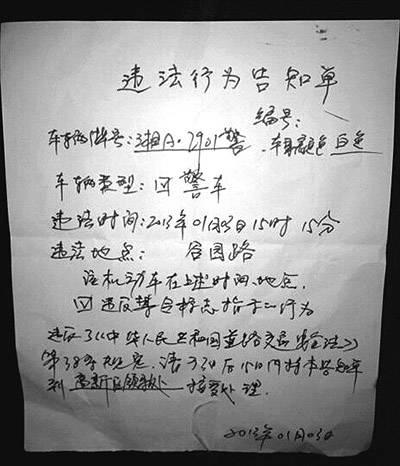 违法行为告知单
编号:
车辆牌号:湘A·2901警 .车身颜色 白色
车辆类型:☑警车
违法时间:2013年01月03日15时15分
违法地点: 谷园路
该机动车在上述时间、地点,
☑违反禁令标志指示的行为
违反了《中华人民共和国道路交通安全法》
第38条规定.请于3日后15日内持本告知单
到 高新区 接受处理.
2013年01月03日